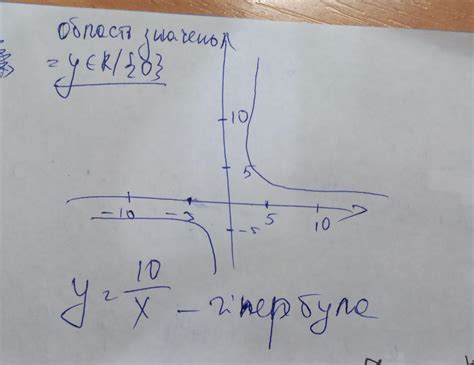 Область значень
= y ∈ R/{0}
10
5
-10 -3 5 10
-5
y = 10/x – гіпербула